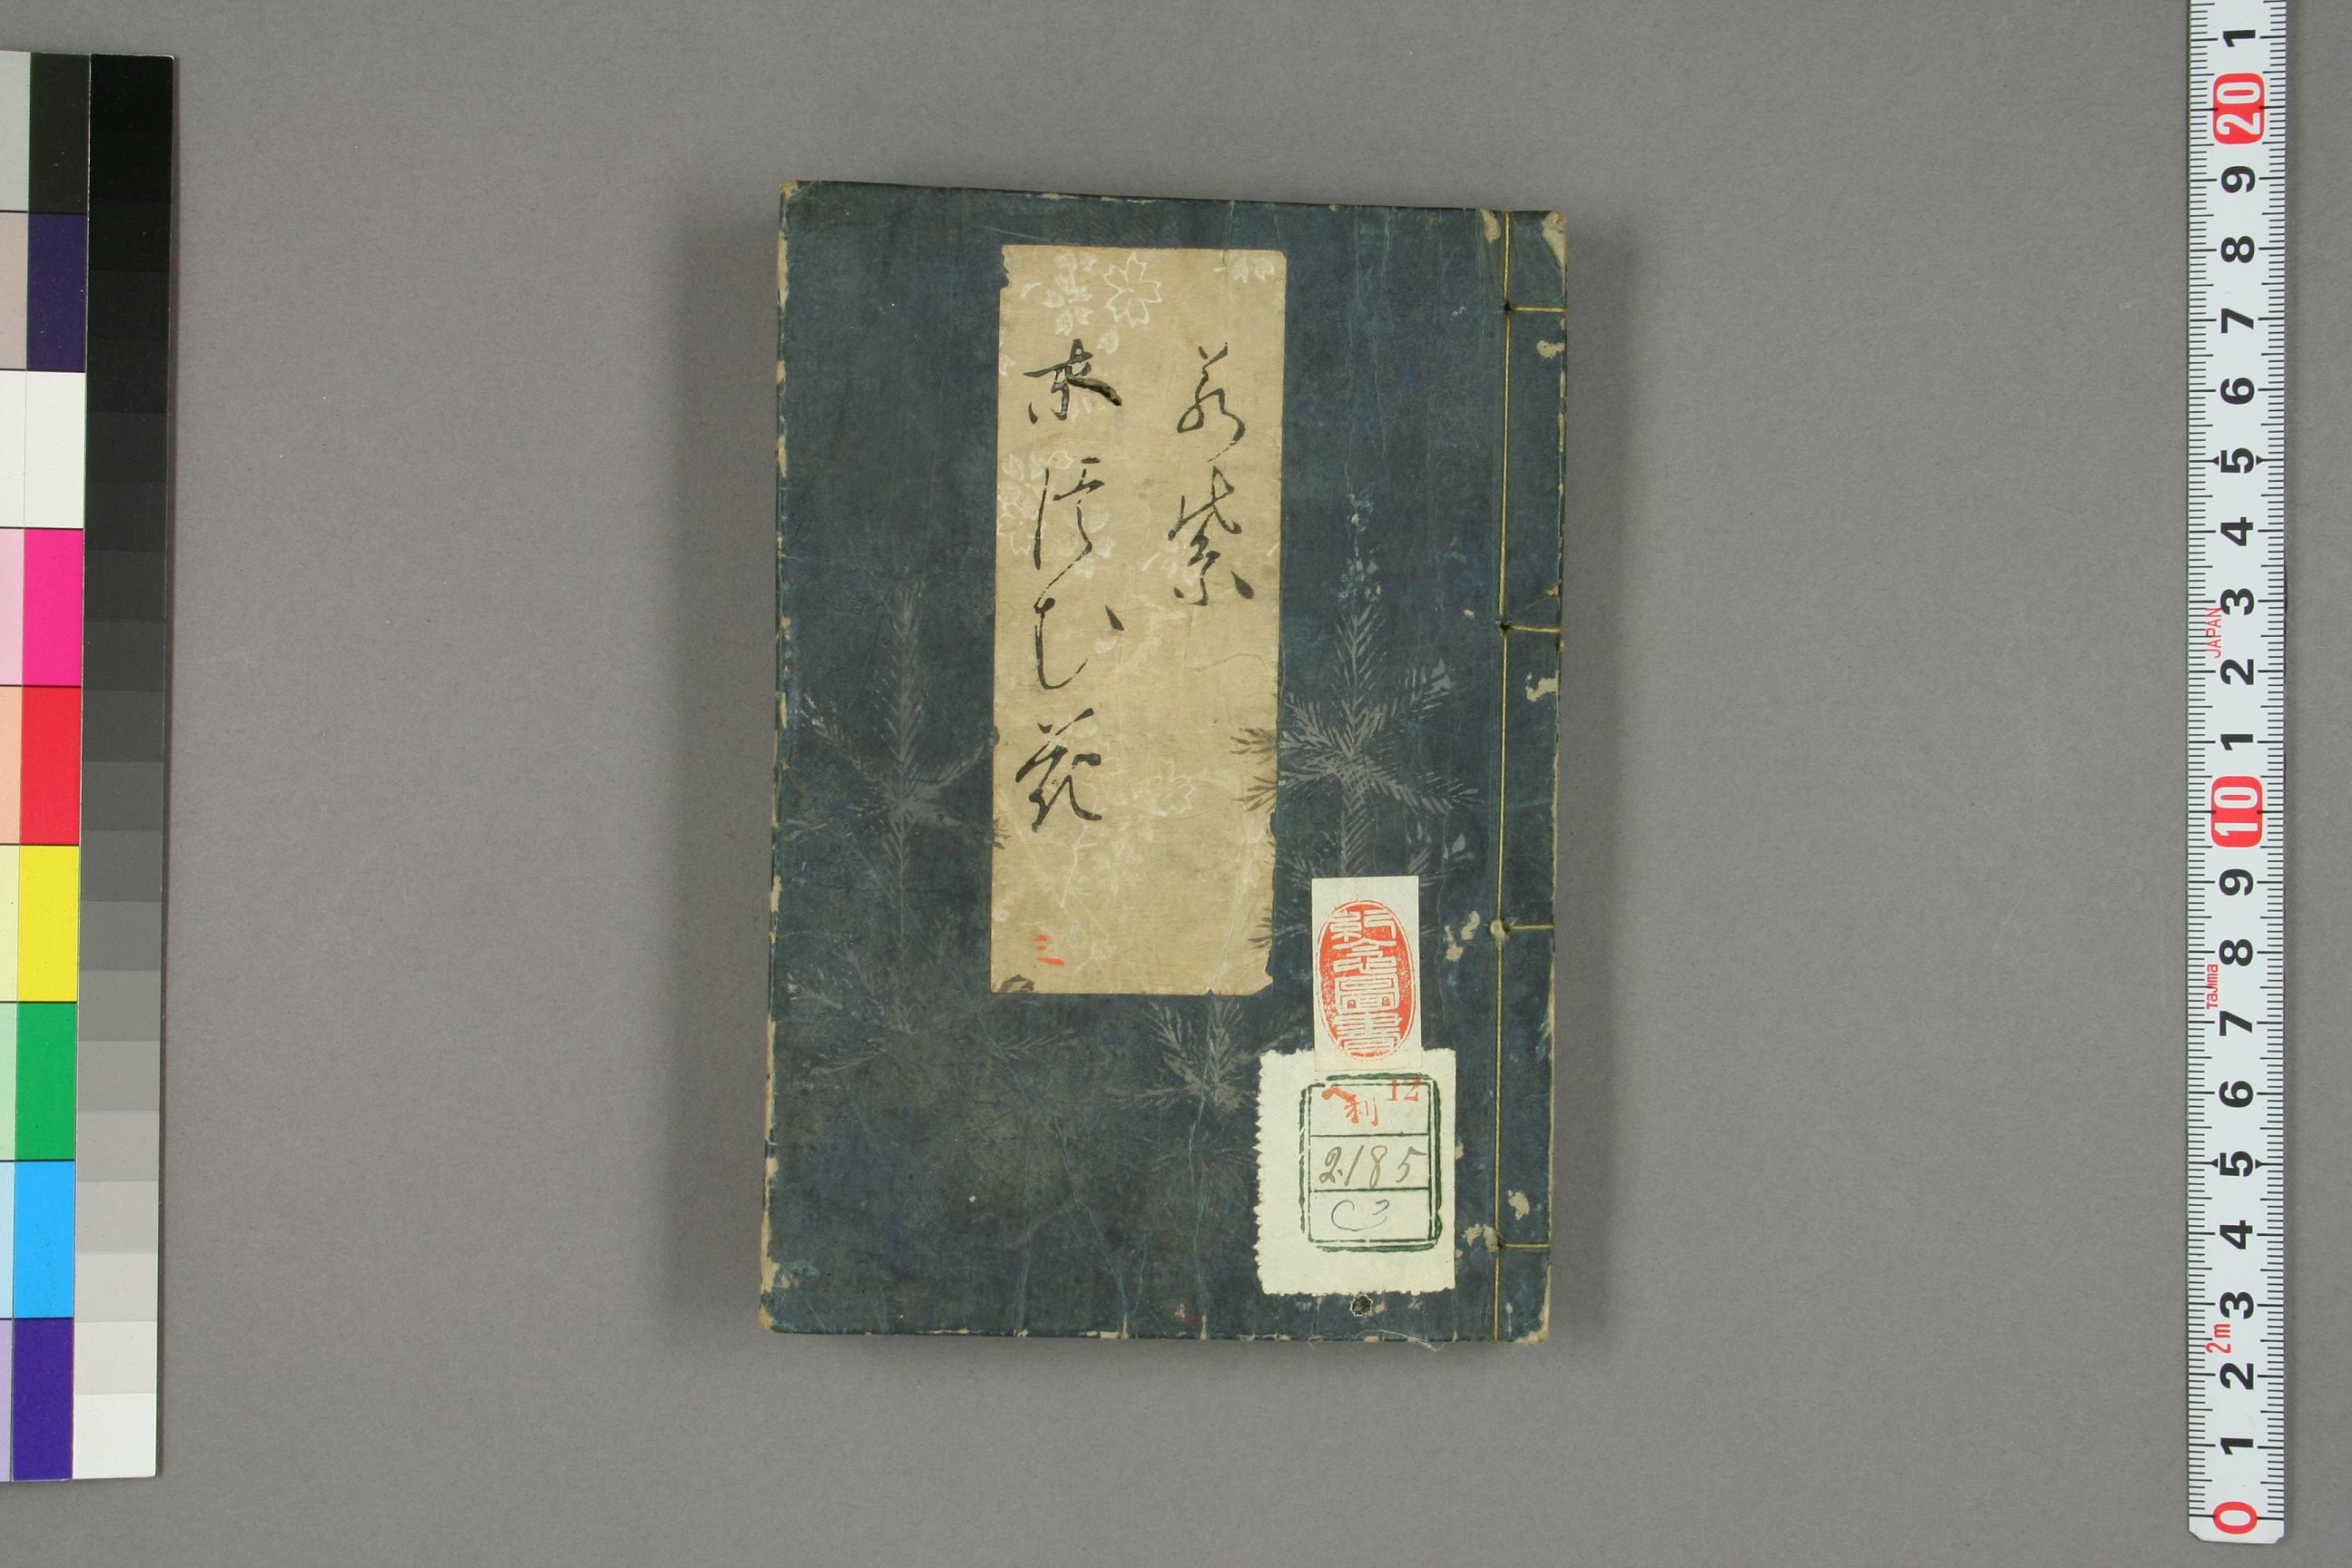 若紫
末津む花
三
へ利 12
2185
C3
1
20
9
8
7
6
5
4
3
2
1
10
9
8
7
6
5
4
3
2
1
0
JAPAN
Tajima
2m